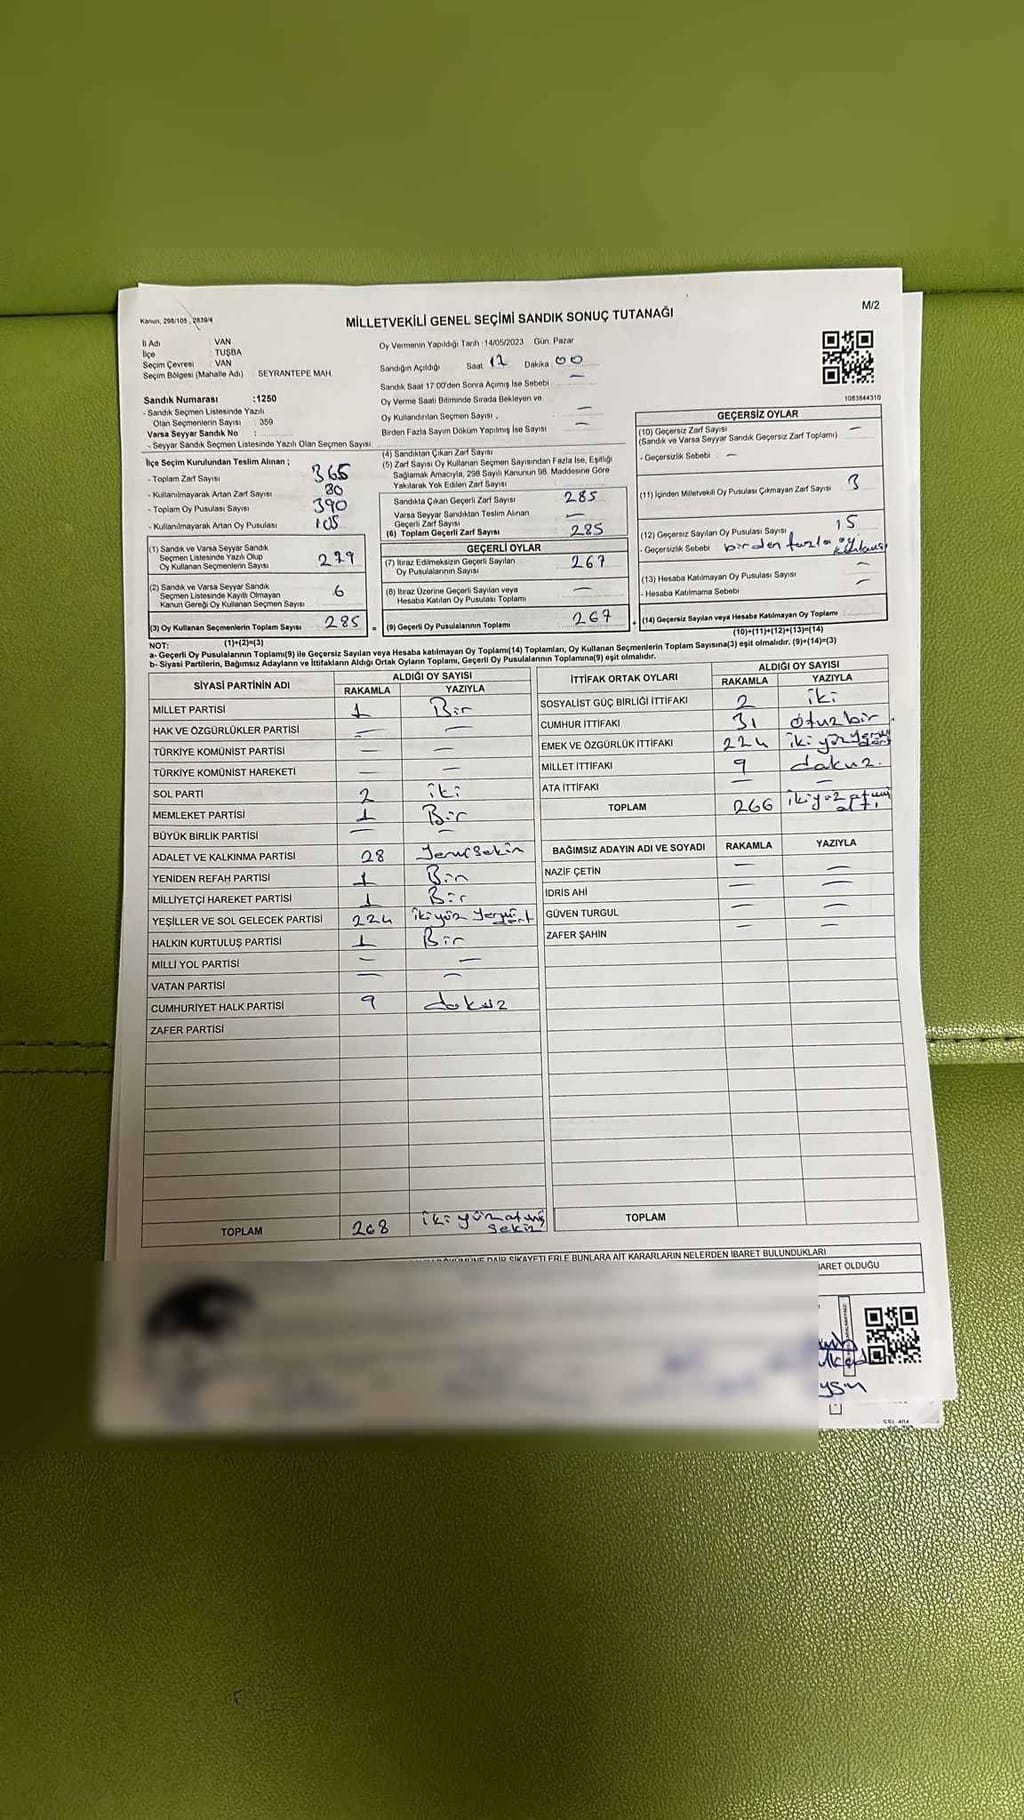 Kanun; 298/105 , 2839/4
MİLLETVEKİLİ GENEL SEÇİMİ SANDIK SONUÇ TUTANAĞI
M/2
İl Adı : VAN
İlçe : TUŞBA
Seçim Çevresi : VAN
Seçim Bölgesi (Mahalle Adı) SEYRANTEPE MAH.
Sandık Numarası :1250
- Sandık Seçmen Listesinde Yazılı
Olan Seçmenlerin Sayısı : 359
Varsa Seyyar Sandık No :
- Seyyar Sandık Seçmen Listesinde Yazılı Olan Seçmen Sayısı:
Oy Vermenin Yapıldığı Tarih :14/05/2023 Gün :Pazar
Sandığın Açıldığı Saat 17 Dakika 00
Sandık Saat 17:00'den Sonra Açılmış İse Sebebi —
Oy Verme Saati Bitiminde Sırada Bekleyen ve
Oy Kullandırılan Seçmen Sayısı : —
Birden Fazla Sayım Döküm Yapılmış İse Sayısı —
1083844310
İlçe Seçim Kurulundan Teslim Alınan ;
- Toplam Zarf Sayısı 365
- Kullanılmayarak Artan Zarf Sayısı 80
- Toplam Oy Pusulası Sayısı 390
- Kullanılmayarak Artan Oy Pusulası 105
(1) Sandık ve Varsa Seyyar Sandık
Seçmen Listesinde Yazılı Olup
Oy Kullanan Seçmenlerin Sayısı 279
(2) Sandık ve Varsa Seyyar Sandık
Seçmen Listesinde Kayıtlı Olmayan
Kanun Gereği Oy Kullanan Seçmen Sayısı 6
(3) Oy Kullanan Seçmenlerin Toplam Sayısı 285 =
(1)+(2)=(3)
(4) Sandıktan Çıkan Zarf Sayısı
(5) Zarf Sayısı Oy Kullanan Seçmen Sayısından Fazla İse, Eşitliği
Sağlamak Amacıyla, 298 Sayılı Kanunun 98. Maddesine Göre
Yakılarak Yok Edilen Zarf Sayısı
Sandıkta Çıkan Geçerli Zarf Sayısı 285
Varsa Seyyar Sandıktan Teslim Alınan
Geçerli Zarf Sayısı —
(6) Toplam Geçerli Zarf Sayısı 285
GEÇERLİ OYLAR
(7) İtiraz Edilmeksizin Geçerli Sayılan
Oy Pusulalarının Sayısı 267
(8) İtiraz Üzerine Geçerli Sayılan veya
Hesaba Katılan Oy Pusulası Toplamı —
(9) Geçerli Oy Pusulalarının Toplamı 267 +
GEÇERSİZ OYLAR
(10) Geçersiz Zarf Sayısı —
(Sandık ve Varsa Seyyar Sandık Geçersiz Zarf Toplamı)
- Geçersizlik Sebebi —
(11) İçinden Milletvekili Oy Pusulası Çıkmayan Zarf Sayısı 3
(12) Geçersiz Sayılan Oy Pusulası Sayısı 15
- Geçersizlik Sebebi birden fazla oy
(13) Hesaba Katılmayan Oy Pusulası Sayısı —
- Hesaba Katılmama Sebebi —
(14) Geçersiz Sayılan veya Hesaba Katılmayan Oy Toplamı
(10)+(11)+(12)+(13)=(14)
NOT:
a- Geçerli Oy Pusulalarının Toplamı(9) ile Geçersiz Sayılan veya Hesaba katılmayan Oy Toplamı(14) Toplamları, Oy Kullanan Seçmenlerin Toplam Sayısına(3) eşit olmalıdır. (9)+(14)=(3)
b- Siyasi Partilerin, Bağımsız Adayların ve İttifakların Aldığı Ortak Oyların Toplamı, Geçerli Oy Pusulalarının Toplamına(9) eşit olmalıdır.
SİYASİ PARTİNİN ADI ALDIĞI OY SAYISI
RAKAMLA YAZIYLA
MİLLET PARTİSİ 1 Bir
HAK VE ÖZGÜRLÜKLER PARTİSİ — —
TÜRKİYE KOMÜNİST PARTİSİ — —
TÜRKİYE KOMÜNİST HAREKETİ — —
SOL PARTİ 2 iki
MEMLEKET PARTİSİ 1 Bir
BÜYÜK BİRLİK PARTİSİ — —
ADALET VE KALKINMA PARTİSİ 28 Yermisekin
YENİDEN REFAH PARTİSİ 1 Bir
MİLLİYETÇİ HAREKET PARTİSİ 1 Bir
YEŞİLLER VE SOL GELECEK PARTİSİ 224 iki yüz
HALKIN KURTULUŞ PARTİSİ 1 Bir
MİLLİ YOL PARTİSİ — —
VATAN PARTİSİ — —
CUMHURİYET HALK PARTİSİ 9 dokuz
ZAFER PARTİSİ
TOPLAM 268 iki yüz atmış
sekiz
İTTİFAK ORTAK OYLARI ALDIĞI OY SAYISI
RAKAMLA YAZIYLA
SOSYALİST GÜÇ BİRLİĞİ İTTİFAKI 2 iki
CUMHUR İTTİFAKI 31 otuz bir
EMEK VE ÖZGÜRLÜK İTTİFAKI 224 iki yüz
MİLLET İTTİFAKI 9 dakuz.
ATA İTTİFAKI — —
TOPLAM 266 iki yüz atmış
altı
BAĞIMSIZ ADAYIN ADI VE SOYADI RAKAMLA YAZIYLA
NAZİF ÇETİN — —
İDRİS AHİ — —
GÜVEN TURGUL — —
ZAFER ŞAHİN — —
TOPLAM
DÖKÜMÜNE DAİR ŞİKAYETLERLE BUNLARA AİT KARARLARIN NELERDEN İBARET BULUNDUKLARI
İBARET OLDUĞU